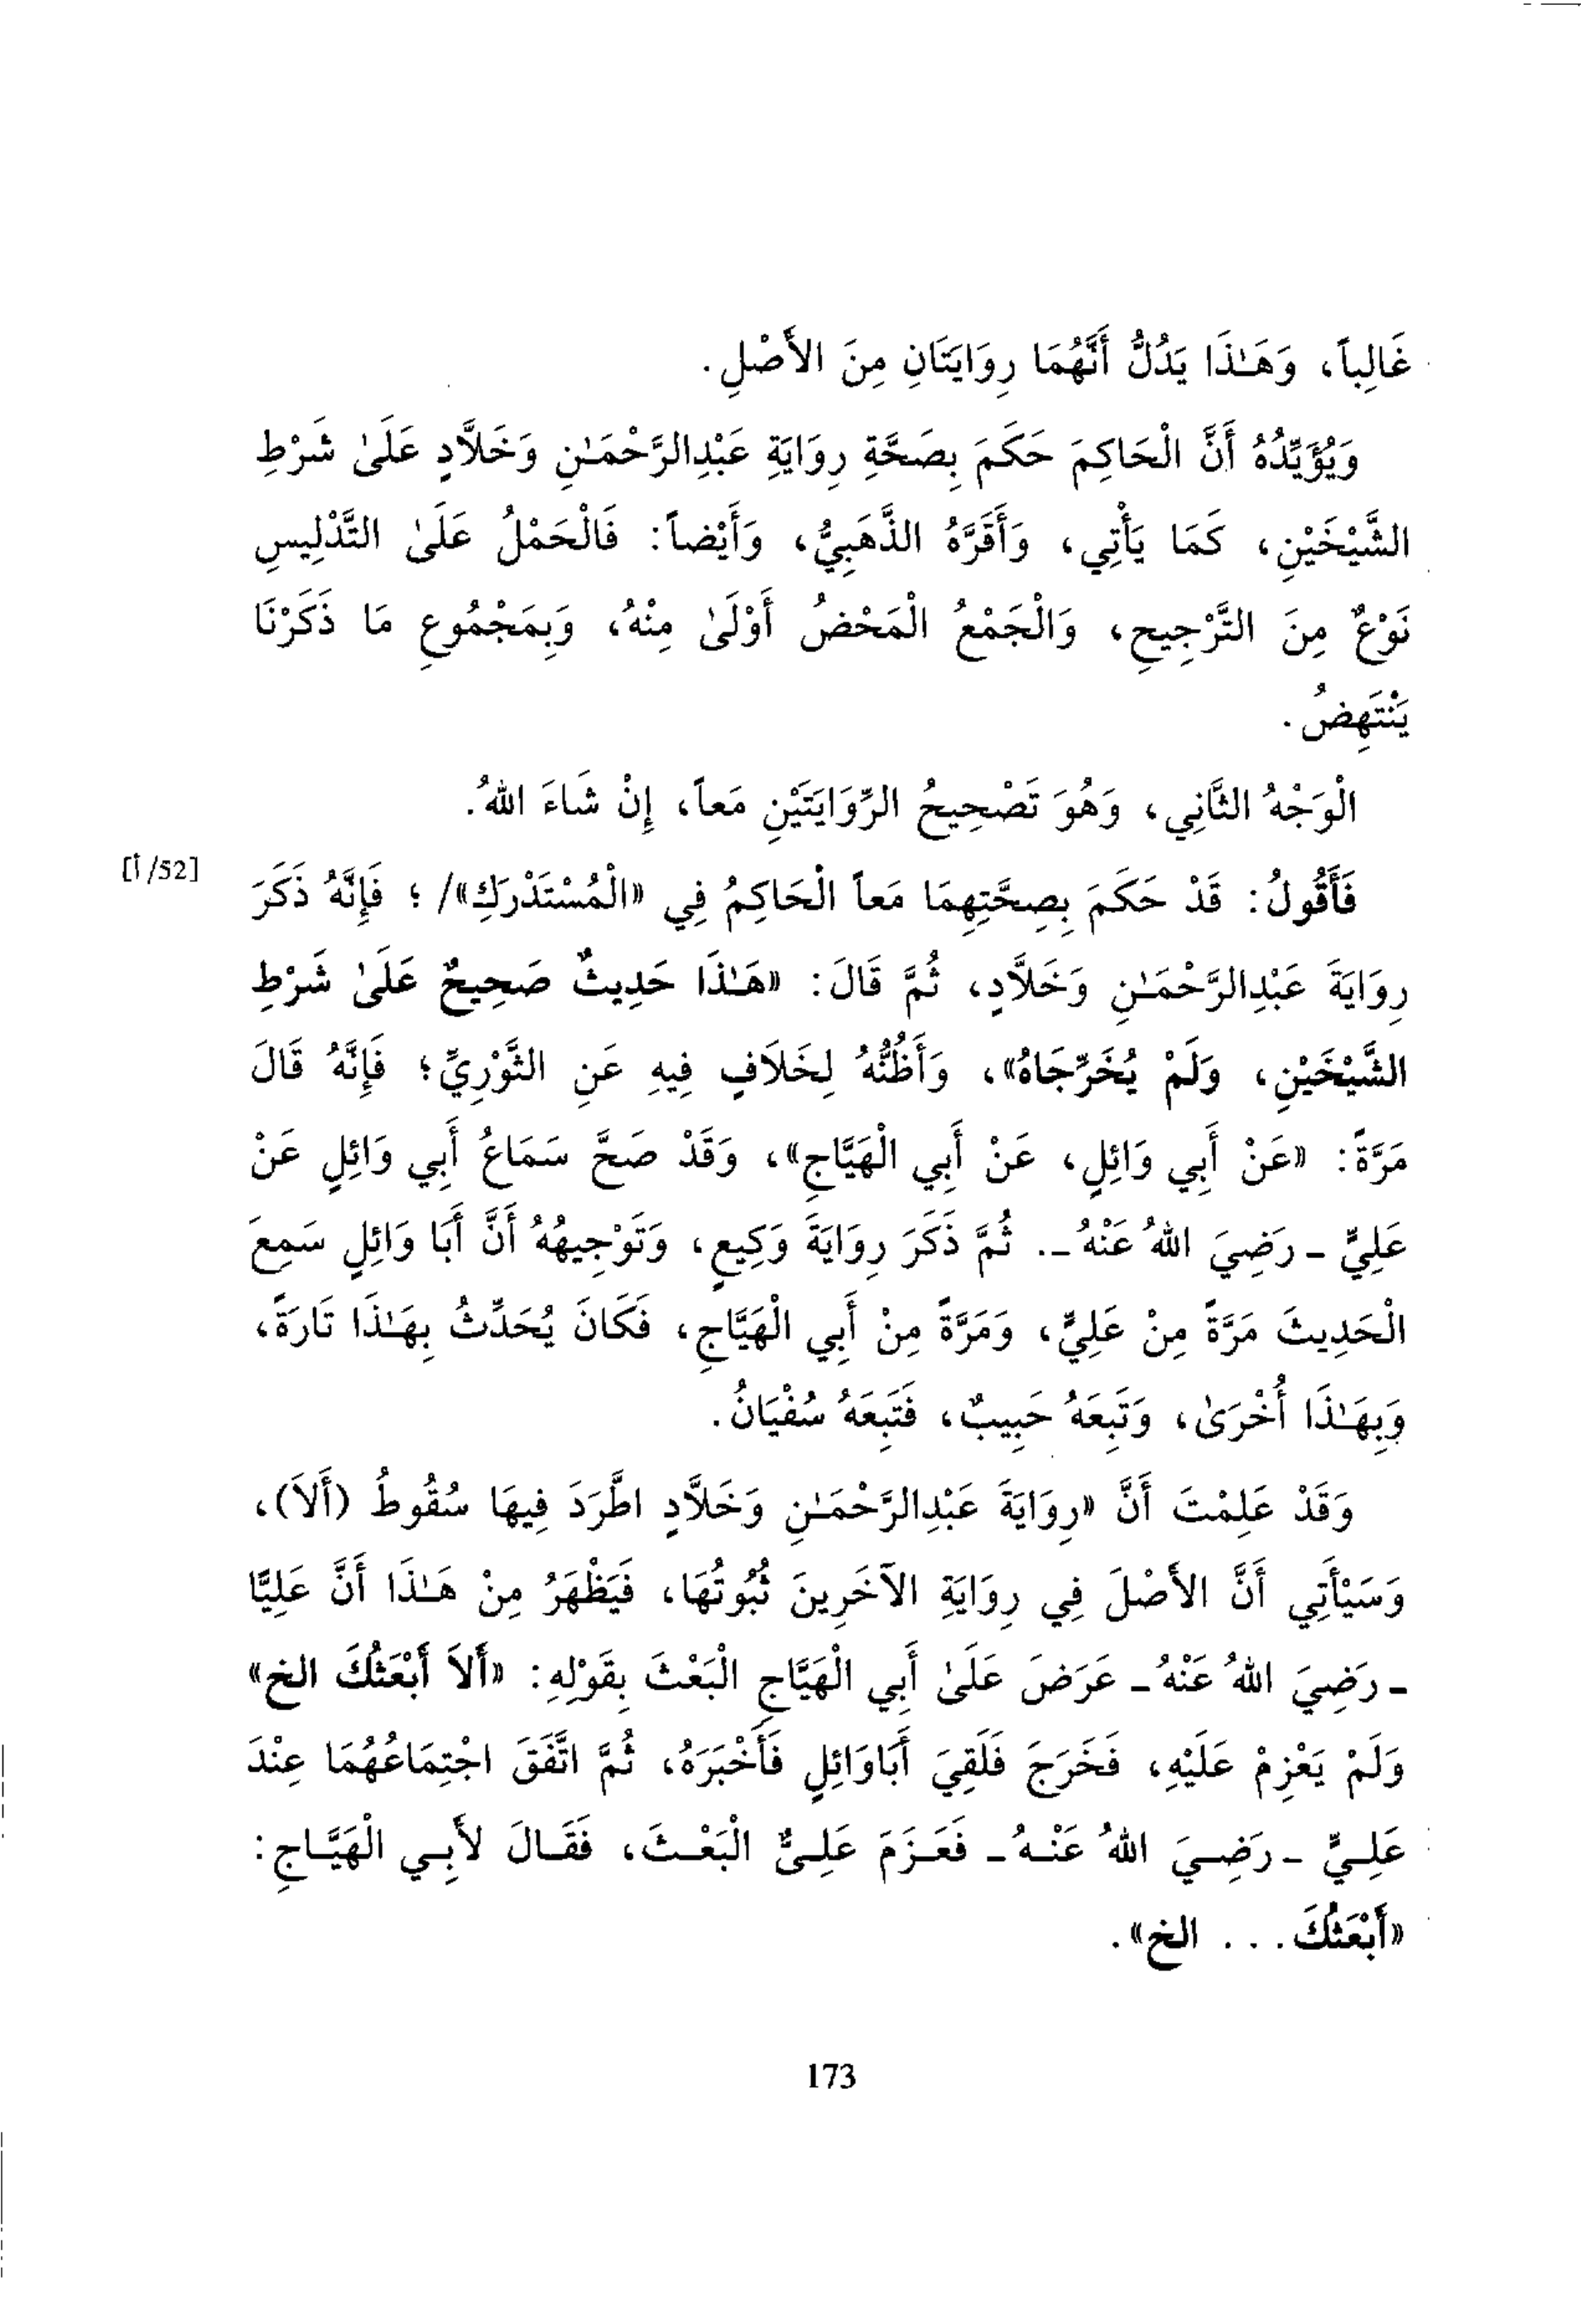 غَالِباً، وَهَـٰذَا يَدُلُّ أَنَّهُمَا رِوَايَتَانِ مِنَ الأَصْلِ.
وَيُؤَيِّدُهُ أَنَّ الْحَاكِمَ حَكَمَ بِصَحَّةِ رِوَايَةِ عَبْدِالرَّحْمَـٰنِ وَخَلاَّدٍ عَلَىٰ شَرْطِ
الشَّيْخَيْنِ، كَمَا يَأْتِي، وَأَقَرَّهُ الذَّهَبِيُّ، وَأَيْضاً: فَالْحَمْلُ عَلَىٰ التَّدْلِيسِ
نَوْعٌ مِنَ التَّرْجِيحِ، وَالْجَمْعُ الْمَحْضُ أَوْلَىٰ مِنْهُ، وَبِمَجْمُوعِ مَا ذَكَرْنَا
يَنْتَهِضُ.
الْوَجْهُ الثَّانِي، وَهُوَ تَصْحِيحُ الرِّوَايَتَيْنِ مَعاً، إِنْ شَاءَ اللهُ.
فَأَقُولُ: قَدْ حَكَمَ بِصِحَّتِهِمَا مَعاً الْحَاكِمُ فِي «الْمُسْتَدْرَكِ»/ ؛ فَإِنَّهُ ذَكَرَ [52/أ]
رِوَايَةَ عَبْدِالرَّحْمَـٰنِ وَخَلاَّدٍ، ثُمَّ قَالَ: «هَـٰذَا حَدِيثٌ صَحِيحٌ عَلَىٰ شَرْطِ
الشَّيْخَيْنِ، وَلَمْ يُخَرِّجَاهُ»، وَأَظُنُّهُ لِخَلَافٍ فِيهِ عَنِ الثَّوْرِيِّ؛ فَإِنَّهُ قَالَ
مَرَّةً: «عَنْ أَبِي وَائِلٍ، عَنْ أَبِي الْهَيَّاجِ»، وَقَدْ صَحَّ سَمَاعُ أَبِي وَائِلٍ عَنْ
عَلِيٍّ ـ رَضِيَ اللهُ عَنْهُ ـ. ثُمَّ ذَكَرَ رِوَايَةَ وَكِيعٍ، وَتَوْجِيهُهُ أَنَّ أَبَا وَائِلٍ سَمِعَ
الْحَدِيثَ مَرَّةً مِنْ عَلِيٍّ، وَمَرَّةً مِنْ أَبِي الْهَيَّاجِ، فَكَانَ يُحَدِّثُ بِهَـٰذَا تَارَةً،
وَبِهَـٰذَا أُخْرَىٰ، وَتَبِعَهُ حَبِيبٌ، فَتَبِعَهُ سُفْيَانُ.
وَقَدْ عَلِمْتَ أَنَّ «رِوَايَةَ عَبْدِالرَّحْمَـٰنِ وَخَلاَّدٍ اطَّرَدَ فِيهَا سُقُوطُ (أَلاَ)،
وَسَيْأَتِي أَنَّ الأَصْلَ فِي رِوَايَةِ الآخَرِينَ ثُبُوتُهَا، فَيَظْهَرُ مِنْ هَـٰذَا أَنَّ عَلِيًّا
ـ رَضِيَ اللهُ عَنْهُ ـ عَرَضَ عَلَىٰ أَبِي الْهَيَّاجِ الْبَعْثَ بِقَوْلِهِ: «أَلاَ أَبْعَثُكَ الخ»
وَلَمْ يَعْزِمْ عَلَيْهِ، فَخَرَجَ فَلَقِيَ أَبَاوَائِلٍ فَأَخْبَرَهُ، ثُمَّ اتَّفَقَ اجْتِمَاعُهُمَا عِنْدَ
عَلِـيٍّ ـ رَضِـيَ اللهُ عَنْـهُ ـ فَعَـزَمَ عَلِـيٌّ الْبَعْـثَ، فَقَـالَ لأَبِـي الْهَيَّـاجِ:
«أَبْعَثُكَ. . . الخ».
173